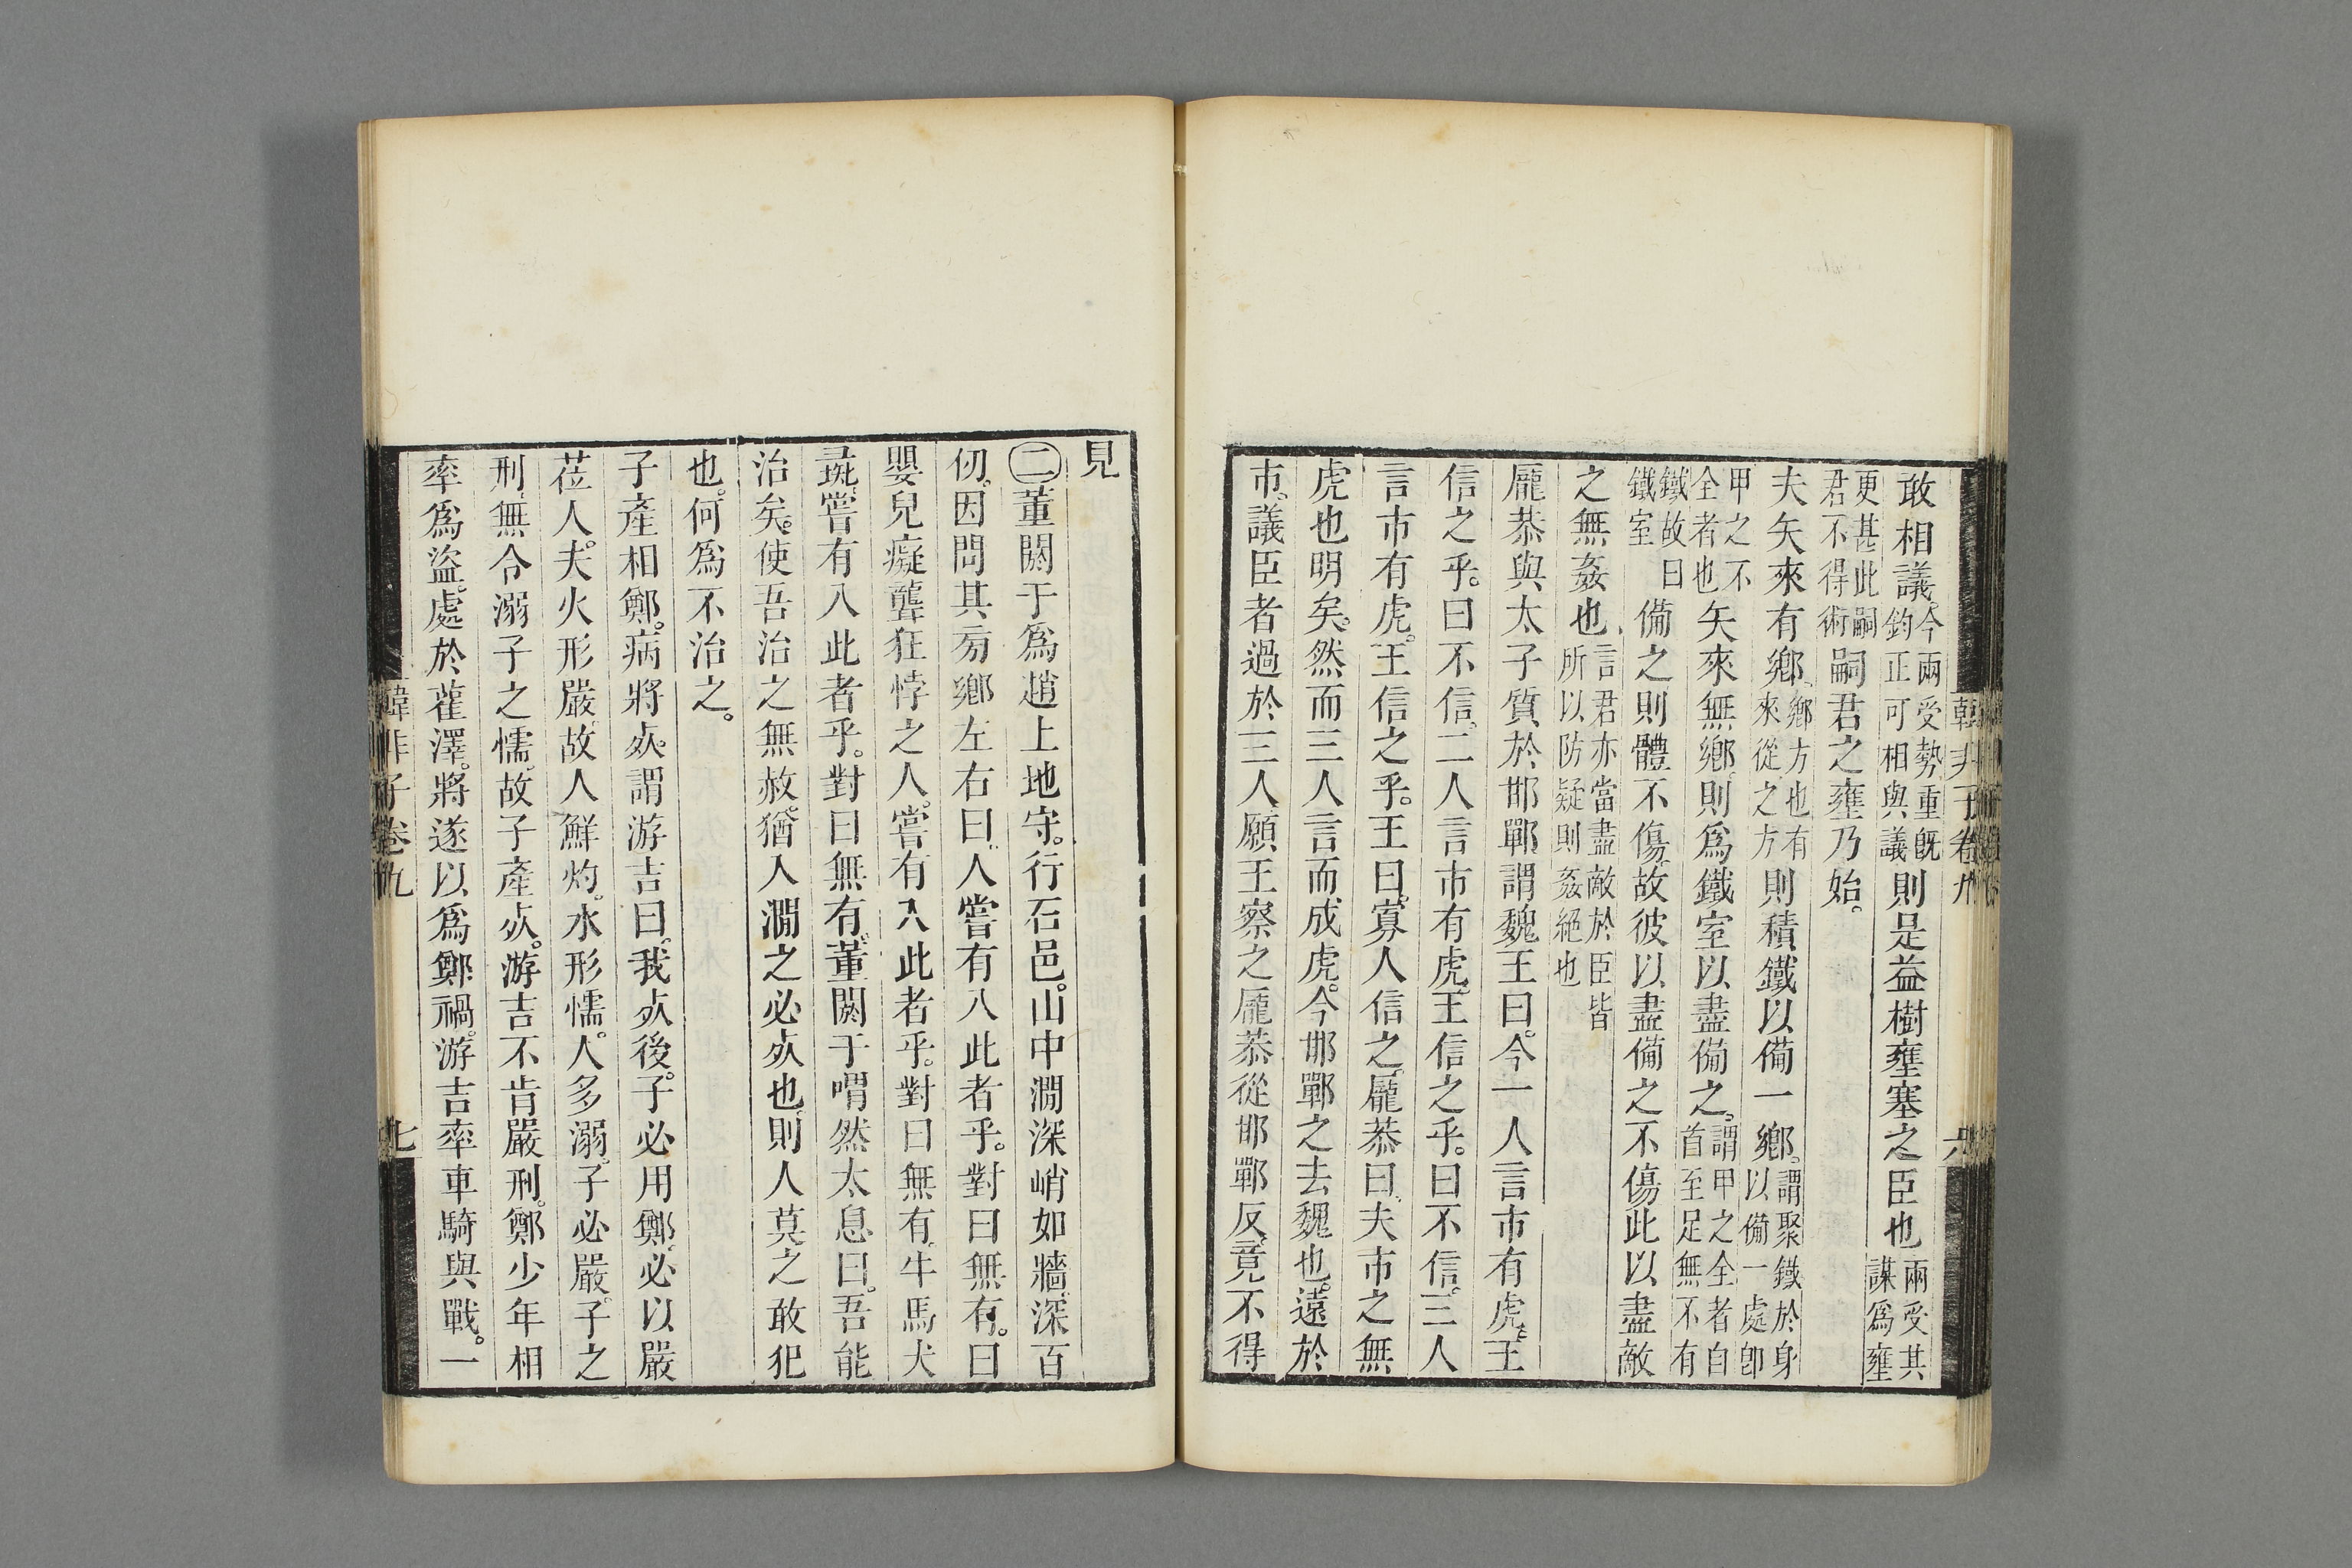 敢相議。今兩受勢重既鈞正可相與議則是益樹壅塞之臣也兩受其謀爲壅
更甚此嗣君不得術嗣君之壅乃始。
夫矢來有鄉。鄉方也有來從之方則積鐵以備一鄉。謂聚鐵於身以備一處卽
甲之不全者也矢來無鄉。則爲鐵室以盡備之。謂甲之全者自首至足無不有
鐵故曰鐵室備之則體不傷。故彼以盡備之不傷此以盡敵
之無姦也、言君亦當盡敵於臣皆所以防疑則姦絕也
龐恭與太子質於邯鄲。謂魏王曰。今一人言市有虎。王
信之乎。曰不信。二人言市有虎。王信之乎。曰不信。三人
言市有虎。王信之乎。王曰。寡人信之。龐恭曰。夫市之無
虎也明矣。然而三人言而成虎。今邯鄲之去魏也。遠於
市。議臣者過於三人。願王察之。龐恭從邯鄲反。竟不得
韓非子卷九 六
見
二董閼于爲趙上地守。行石邑。山中澗深峭如牆。深百
仞。因問其旁鄉左右曰。人嘗有入此者乎。對曰無有。曰
嬰兒癡聾狂悖之人。嘗有入此者乎。對曰無有。牛馬犬
彘。嘗有入此者乎。對曰無有。董閼于喟然太息曰。吾能
治矣。使吾治之無赦。猶入澗之必死也。則人莫之敢犯
也。何爲不治之。
子產相鄭。病將死。謂游吉曰。我死後。子必用鄭。必以嚴
莅人。夫火形嚴。故人鮮灼。水形懦。人多溺。子必嚴。子之
刑。無令溺子之懦。故子產死。游吉不肯嚴刑。鄭少年相
率爲盜。處於雚澤。將遂以爲鄭禍。游吉率車騎與戰。一
韓非子卷九 七